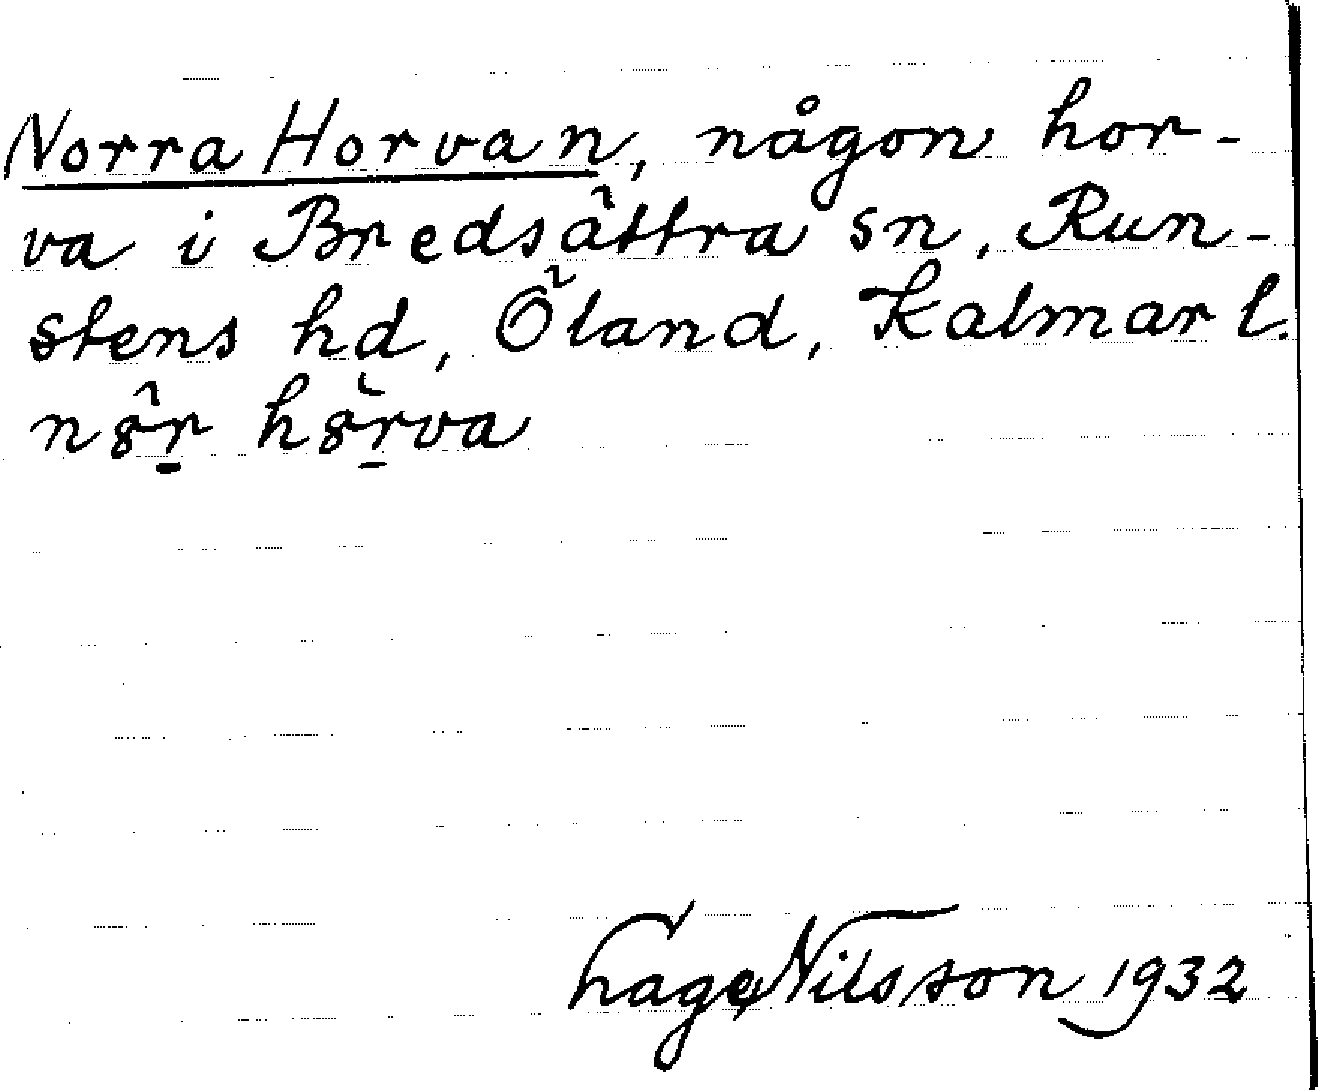 Norra Horvan, någon hor-
va i Bredsättra sn, Run-
stens hd, Öland, Kalmar l.
nȣ̂r̲ hȣ̀r̲va
Hage Nilsson 1932